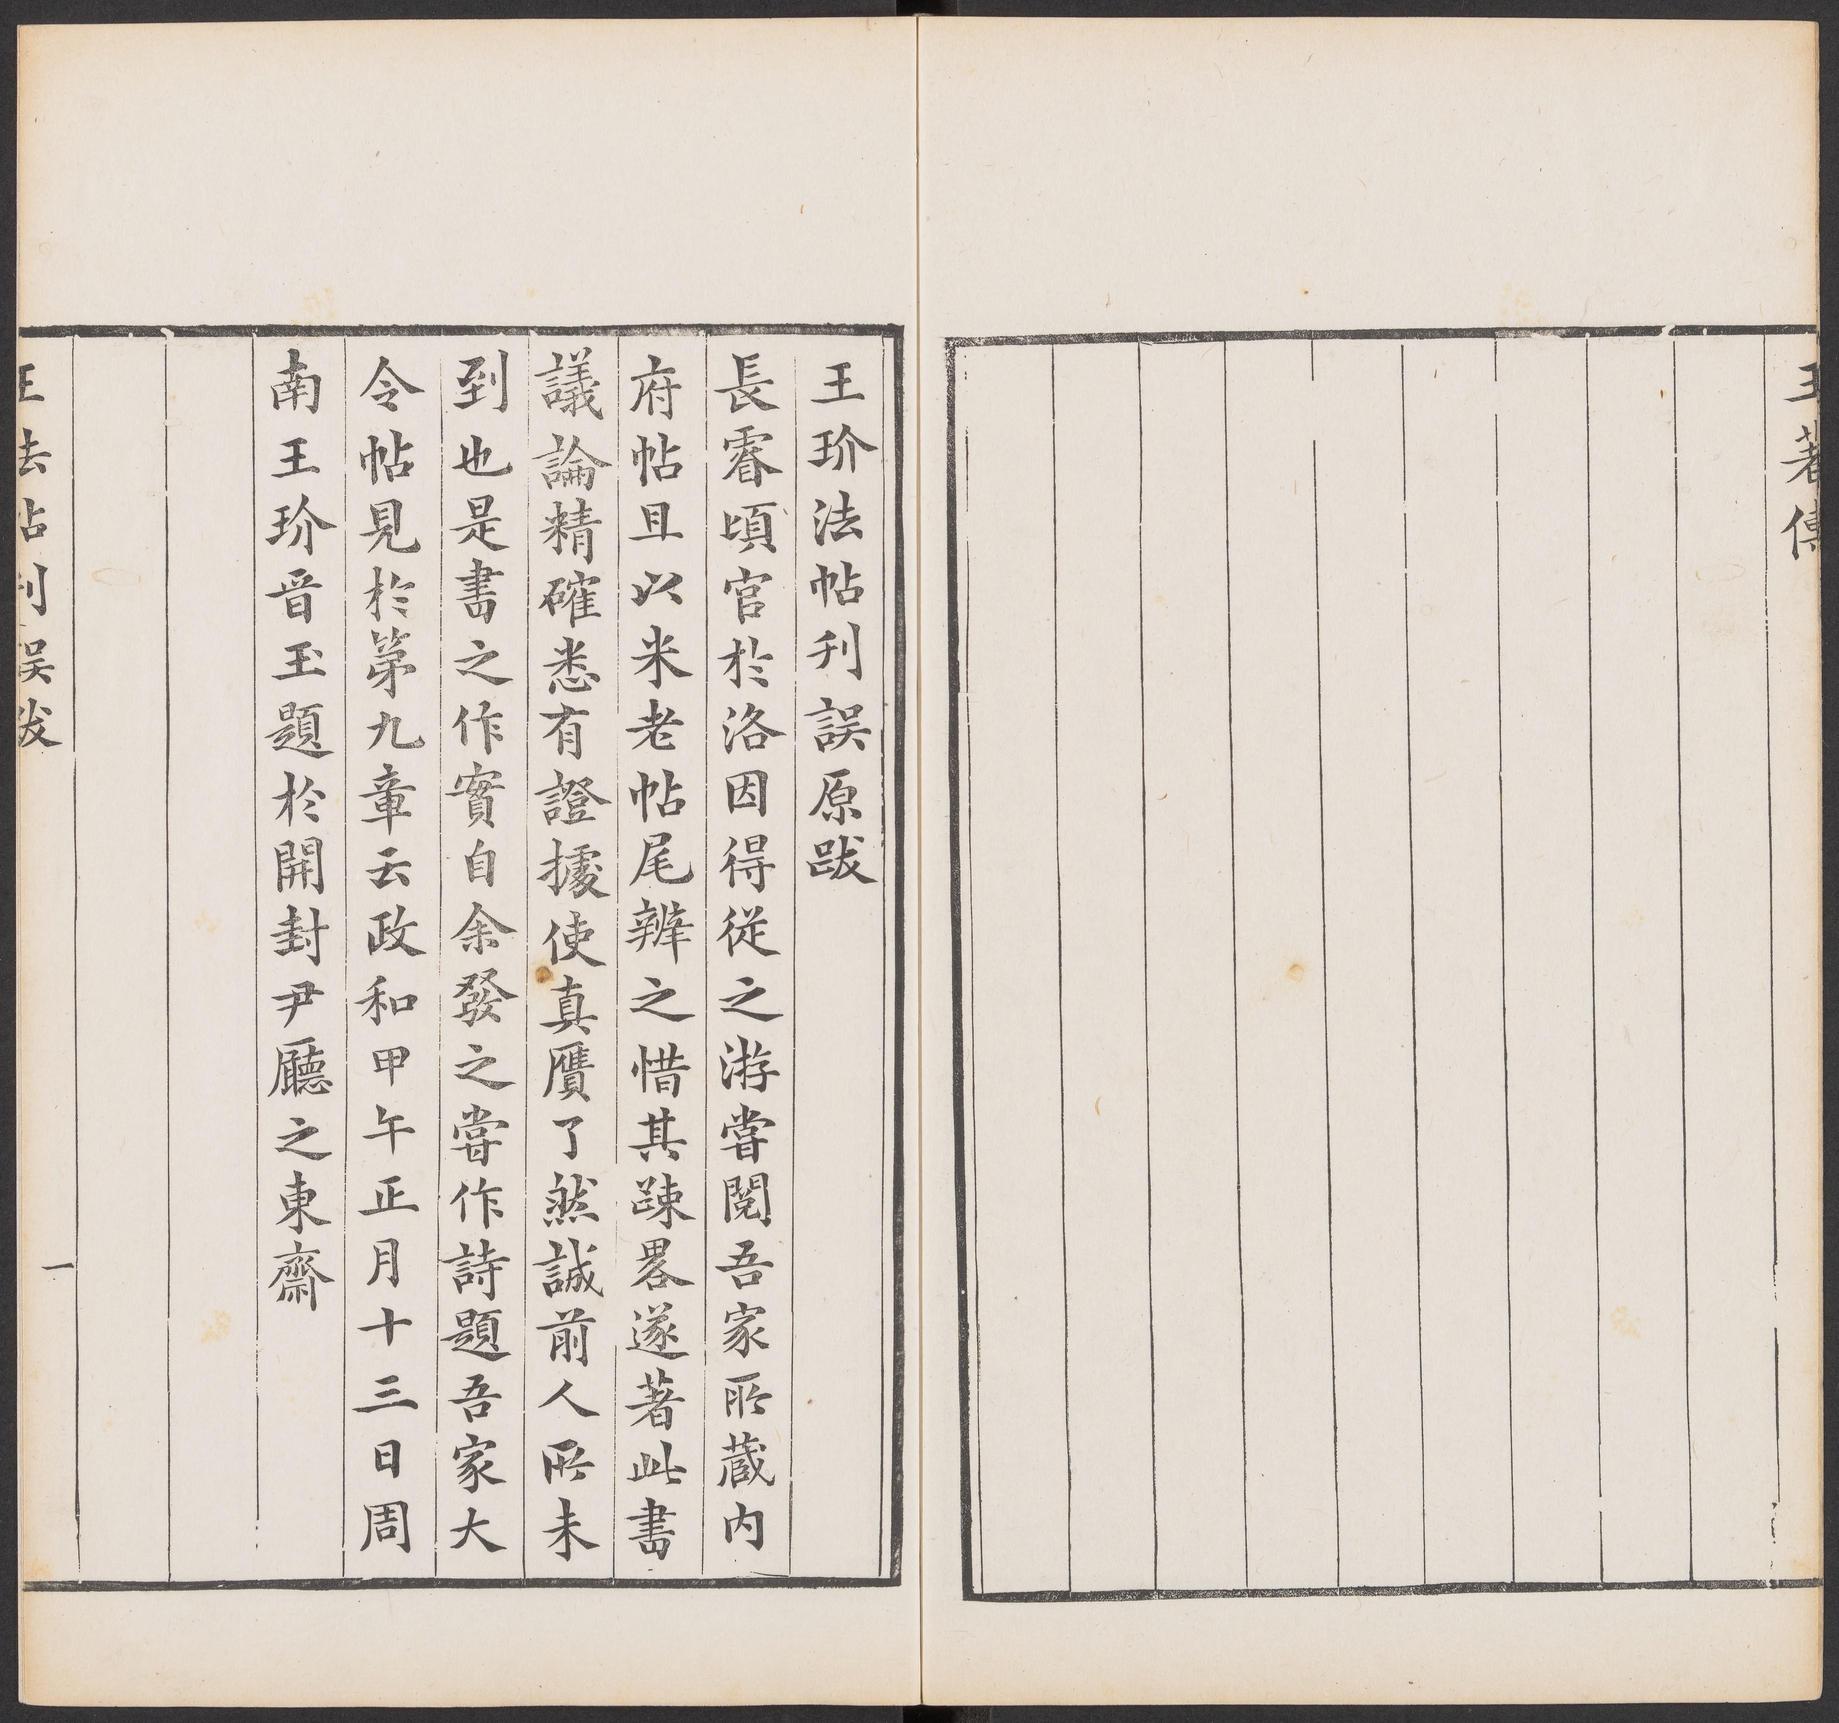 王著傳
王玠法帖刋誤原跋
長睿頃官於洛因得從之游嘗閱吾家所藏内
府帖且以米老帖尾辨之惜其踈畧遂著此書
議論精確悉有證據使真贋了然誠前人所未
到也是書之作實自余發之嘗作詩題吾家大
令帖見於第九章云政和甲午正月十三日周
南王玠晋玉題於開封尹廳之東齋
王法帖刋誤跋
一